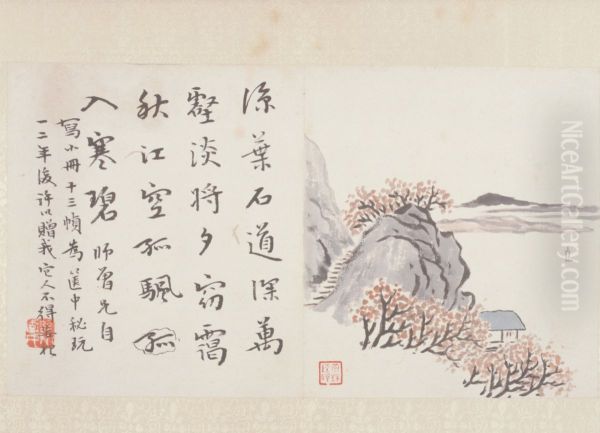 涼葉石道深萬
壑淡將夕窈靄
秋江空孤颿孤
入寒碧 師曾兄自
寫小冊十三幀為篋中秘玩
一二年後許以贈我它人不得
NiceArtGallery.com